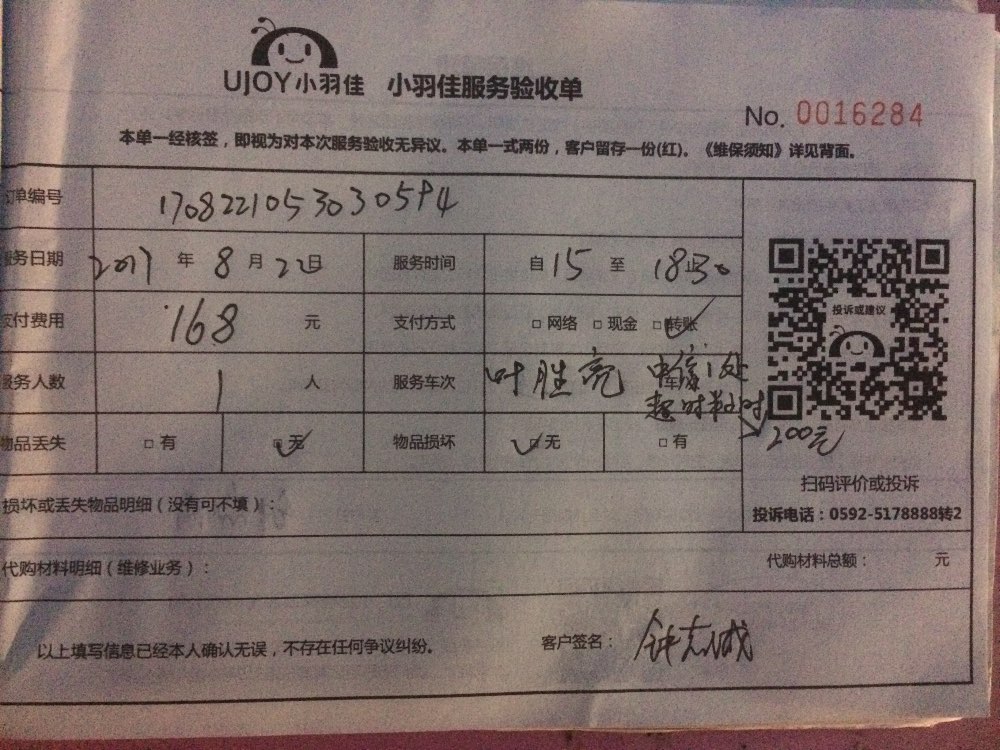 UJOY小羽佳 小羽佳服务验收单
No. 0016284
本单一经核签，即视为对本次服务验收无异议。本单一式两份，客户留存一份(红)。《维保须知》详见背面。
订单编号 1708221053030594
服务日期 2017 年 8 月 22日 服务时间 自 15 至 18 止30
支付费用 168 元 支付方式 □ 网络 □ 现金 □ 转账 ✓
服务人数 1 人 服务车次 叶胜亮 车
超时半小时
→200元
物品丢失 □ 有 □ 无 ✓ 物品损坏 ✓ □ 无 □ 有
投诉或建议
扫码评价或投诉
投诉电话：0592-5178888转2
损坏或丢失物品明细（没有可不填）：
代购材料明细（维修业务）： 代购材料总额： 元
以上填写信息已经本人确认无误，不存在任何争议纠纷。 客户签名： 钟志城